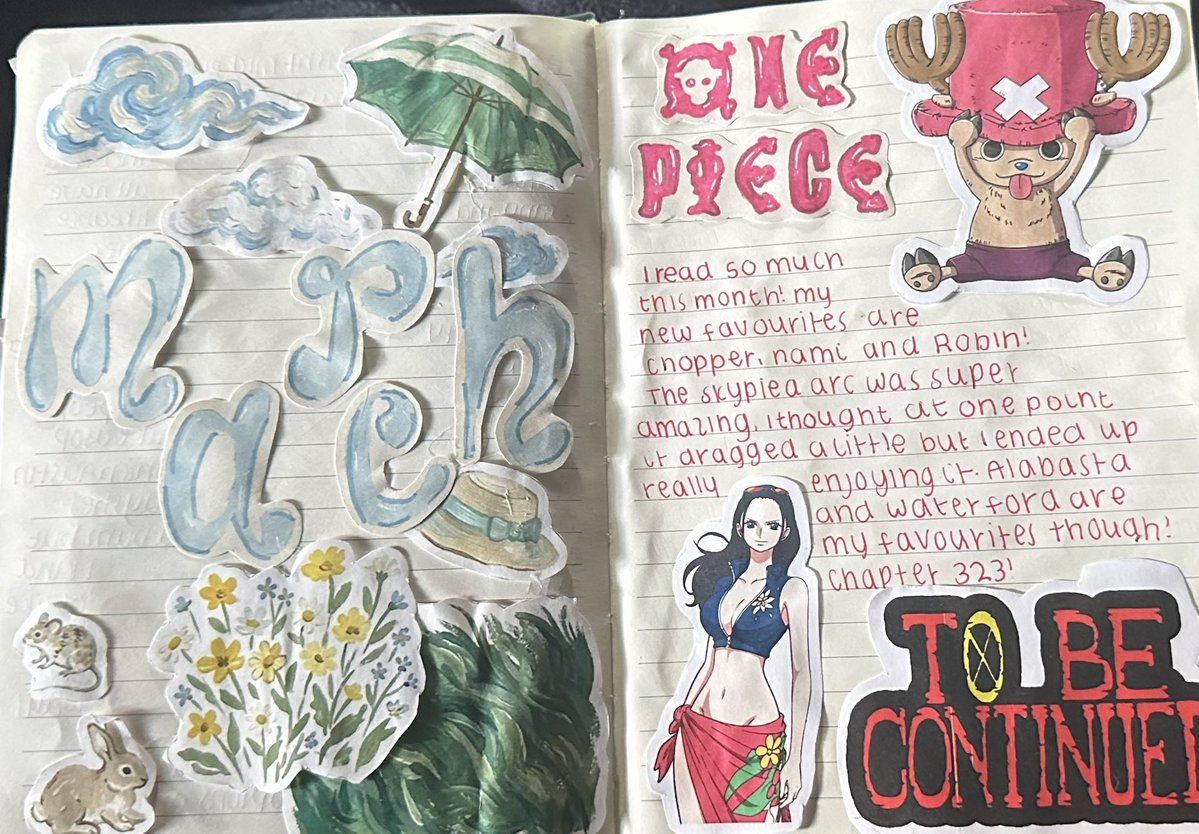 march
ONE
PIECE
I read so much
this month! my
new favourites are
chopper, nami and Robin!
The skypiea arc was super
amazing, i thought at one point
it dragged a little but i ended up
really enjoying it. Alabasta
and waterford are
my favourites though!
Chapter 323!
TO BE
CONTINUED